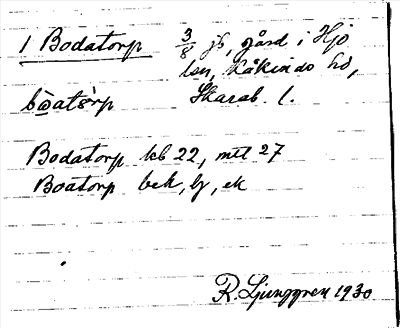 1 Bodatorp 3/8 js, gård i Hjo
lsn, Kåkinds hd,
bo͝atårp Skarab. l.
Bodatorp kb 22, mtl 27
Boatorp bek, lj, ek
R. Ljunggren 1930